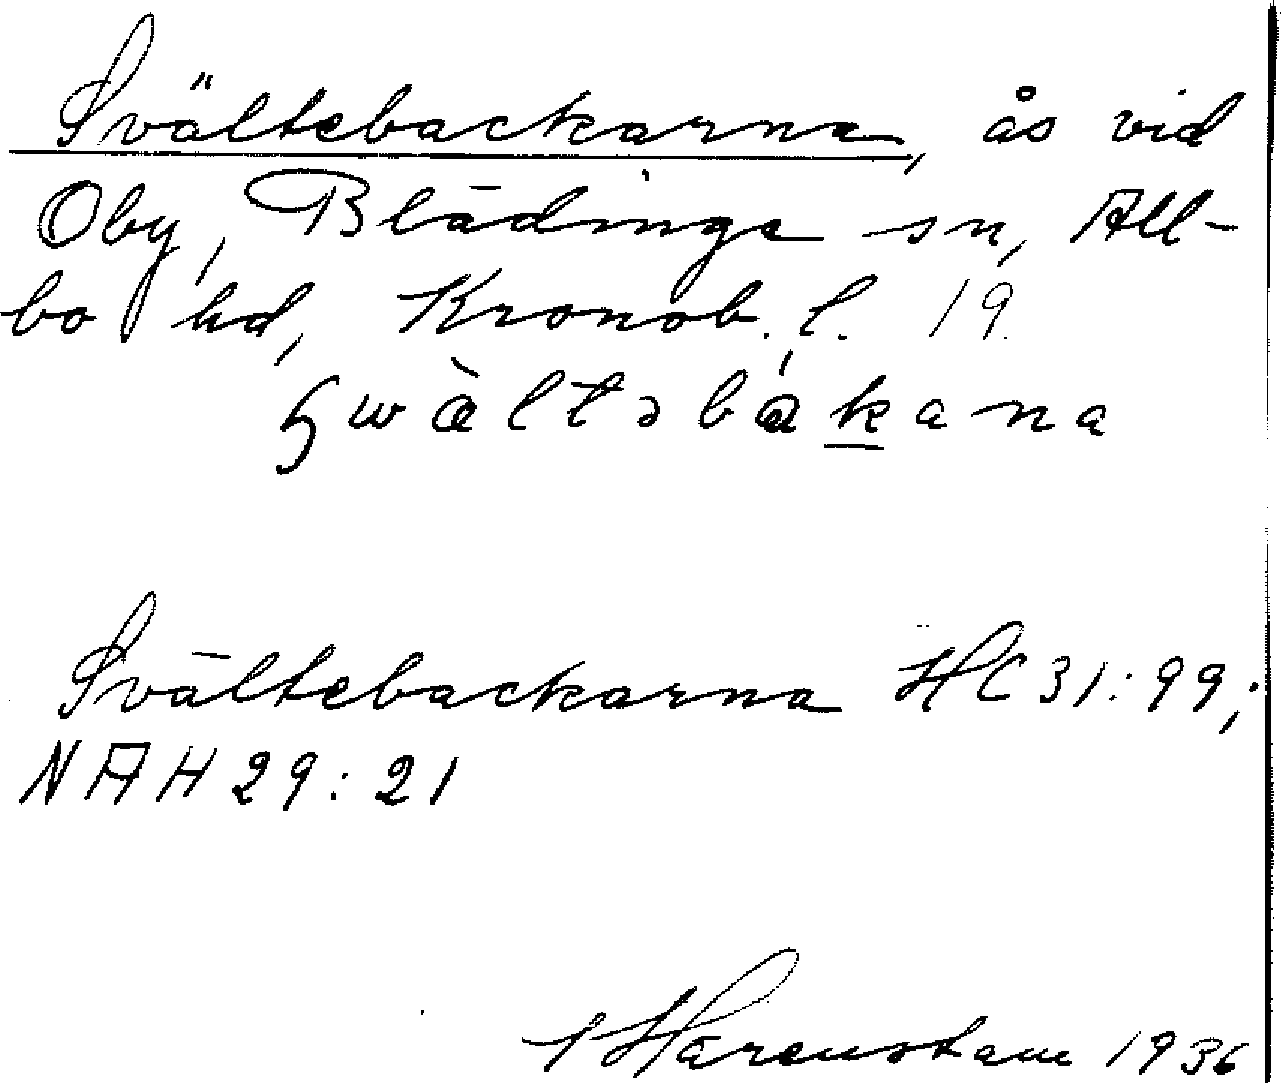 Svältebackarna, ås vid
Oby, Blädinge sn, All-
bo hd, Kronob. l. 19.
Svältebackarna HC 31:99;
NAH 29:21
Harenstam 1936